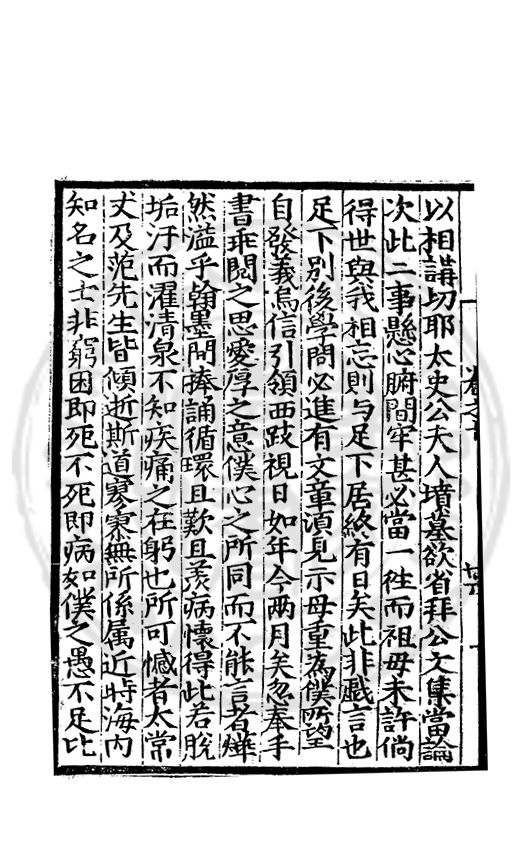 以相講切耶太史公夫人墳墓欲省拜公文集當論
次此二事懸心腑間牢甚必當一徃而祖母未許倘
得世與我相忘則与足下居終有日矣此非戯言也
足下別後學問必進有文章湏見示毋重為僕所望
自發義烏信引領西跂視日如年今两月矣忽奉手
書乖閱之思愛厚之意僕心之所同而不能言者燁
然溢乎翰墨間捧誦循環且歎且羨病懷得此若脫
垢汙而濯清泉不知疾痛之在躬也所可憾者太常
丈及范先生皆傾逝斯道寥寥無所係属近時海内
知名之士非窮困即死不死即病如僕之愚不足比